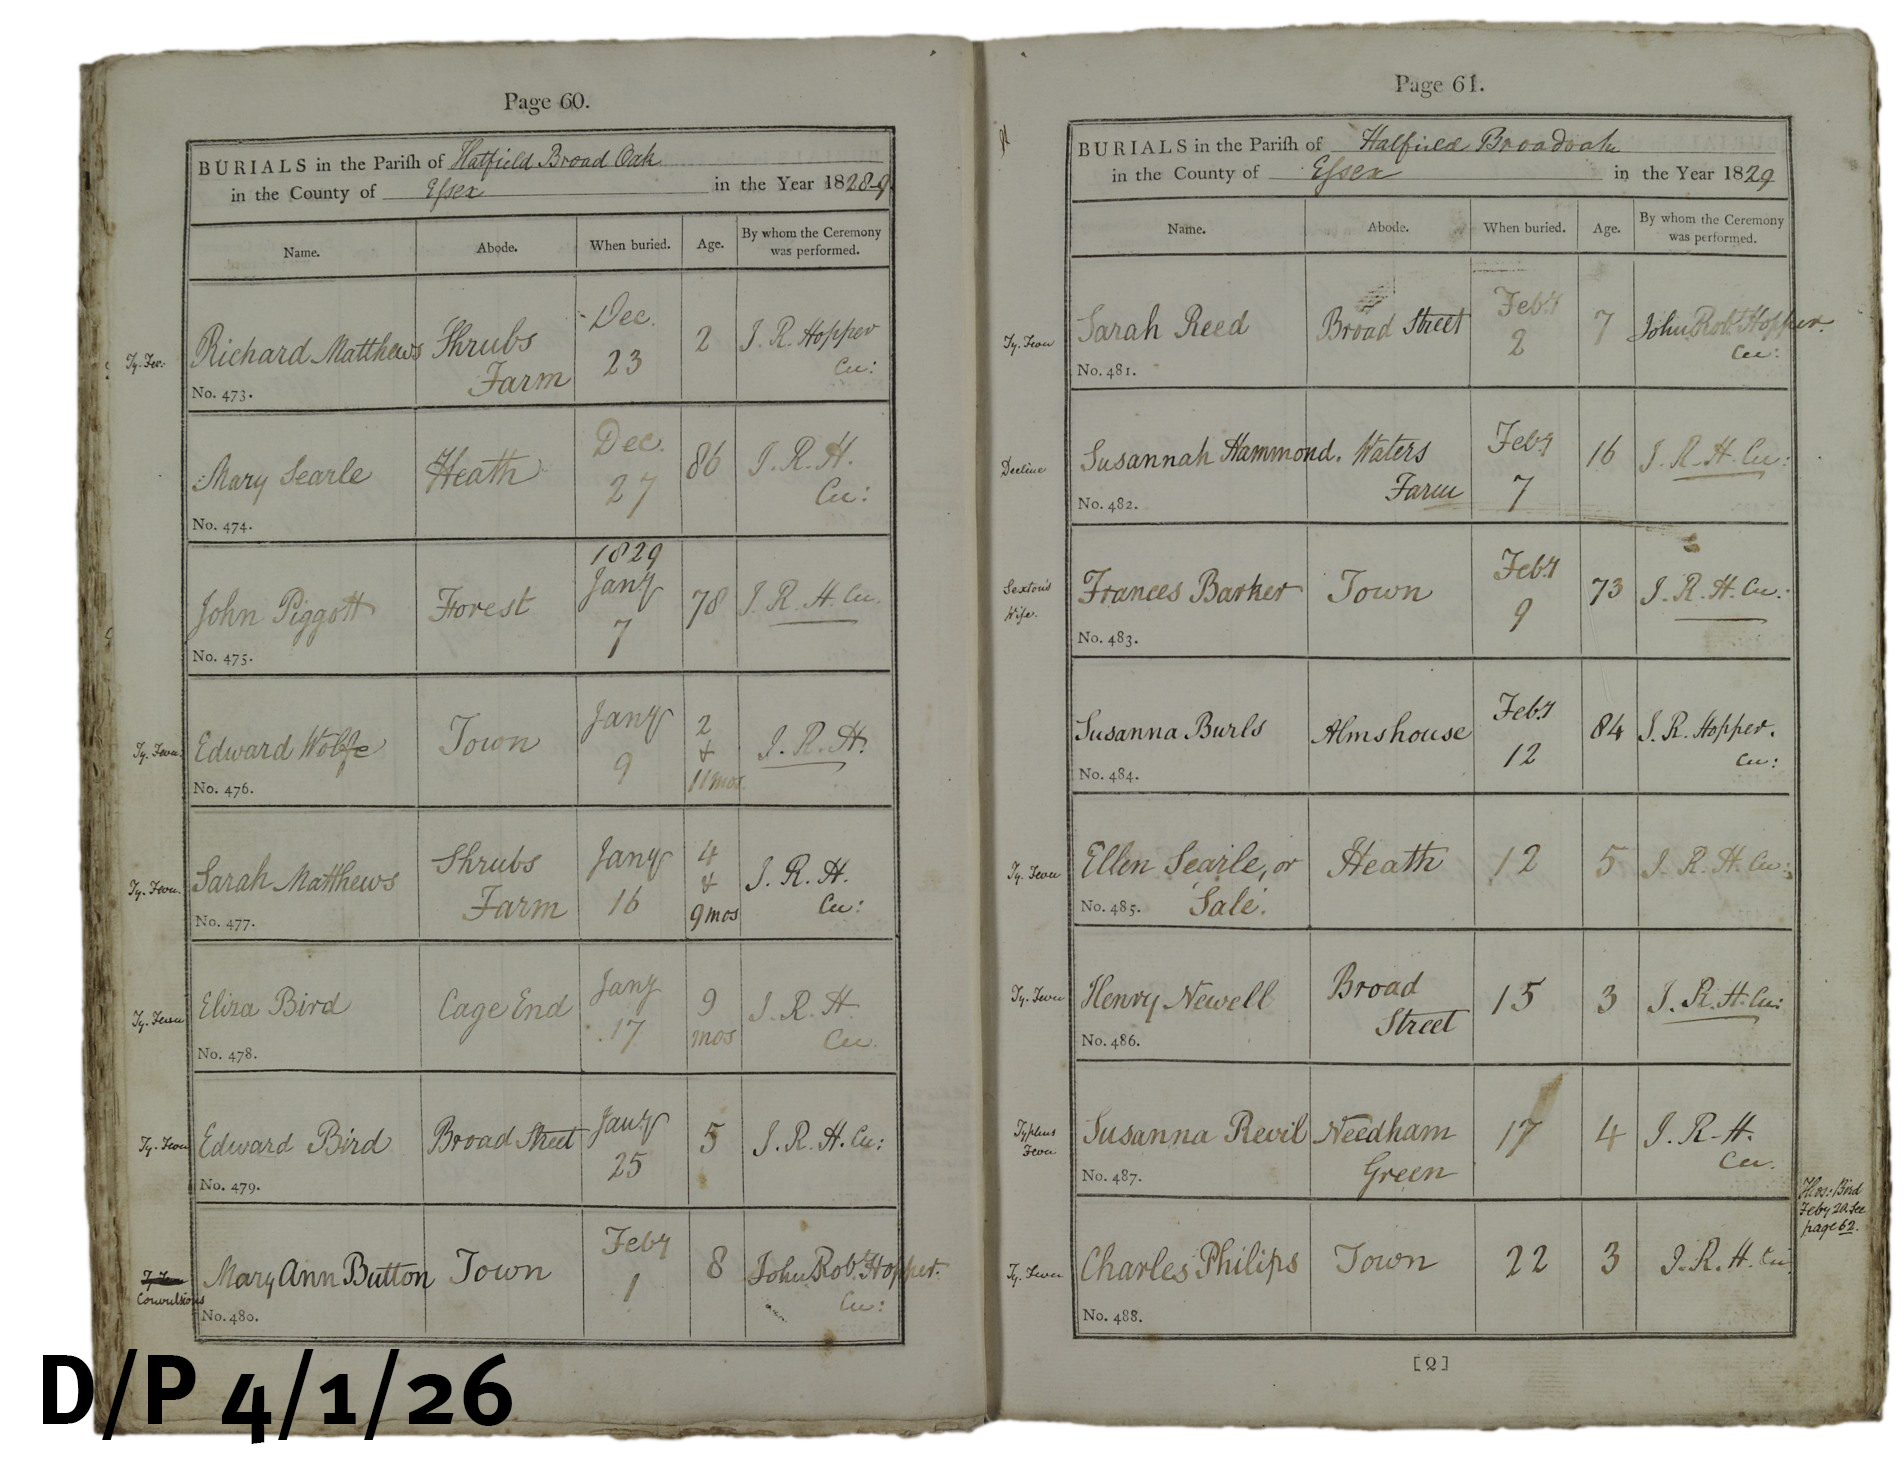 Page 60.
BURIALS in the Parish of Hatfield Broad Oak
in the County of Essex in the Year 1828-9
Name. Abode. When buried. Age. By whom the Ceremony was performed.
Ty. Fev:
Richard Matthews Shrubs Farm Dec. 23 2 J. R. Hopper Cu:
No. 473.
Mary Searle Heath Dec. 27 86 J. R. H. Cu:
No. 474.
John Piggott Forest 1829 Jany 7 78 J. R. H. Cu.
No. 475.
Ty. Fever
Edward Wolfe Town Jany 9 2 & 11 mos J. R. H.
No. 476.
Ty. Fever
Sarah Matthews Shrubs Farm Jany 16 4 & 9 mos J. R. H. Cu:
No. 477.
Ty. Fever
Eliza Bird Cage End Jany 17 9 mos J. R. H. Cu.
No. 478.
Ty. Fever
Edward Bird Broad Street Jany 25 5 J. R. H. Cu:
No. 479.
Convulsions
Mary Ann Button Town Feby 1 8 John Robt. Hopper. Cu:
No. 480.
Page 61.
BURIALS in the Parish of Hatfield Broadoak
in the County of Essex in the Year 1829
Name. Abode. When buried. Age. By whom the Ceremony was performed.
Ty. Fever
Sarah Reed Broad Street Feby 2 7 John Robt. Hopper. Cu:
No. 481.
Decline
Susannah Hammond. Waters Farm Feby 7 16 J. R. H. Cu:
No. 482.
Sexton's Wife.
Frances Barker Town Feby 9 73 J. R. H. Cu.
No. 483.
Susanna Burls Almshouse Feby 12 84 J. R. Hopper. Cu:
No. 484.
Ty. Fever
Ellen Searle, or Sale. Heath 12 5 J. R. H. Cu:
No. 485.
Ty. Fever
Henry Newell Broad Street 15 3 J. R. H. Cu:
No. 486.
Typhus Fever
Susanna Revil Needham Green 17 4 J. R. H. Cu.
No. 487.
Thos: Bird
Feby 20. See
page 62.
Ty. Fever
Charles Philips Town 22 3 J. R. H. Cu
No. 488.
[Q]
D/P 4/1/26